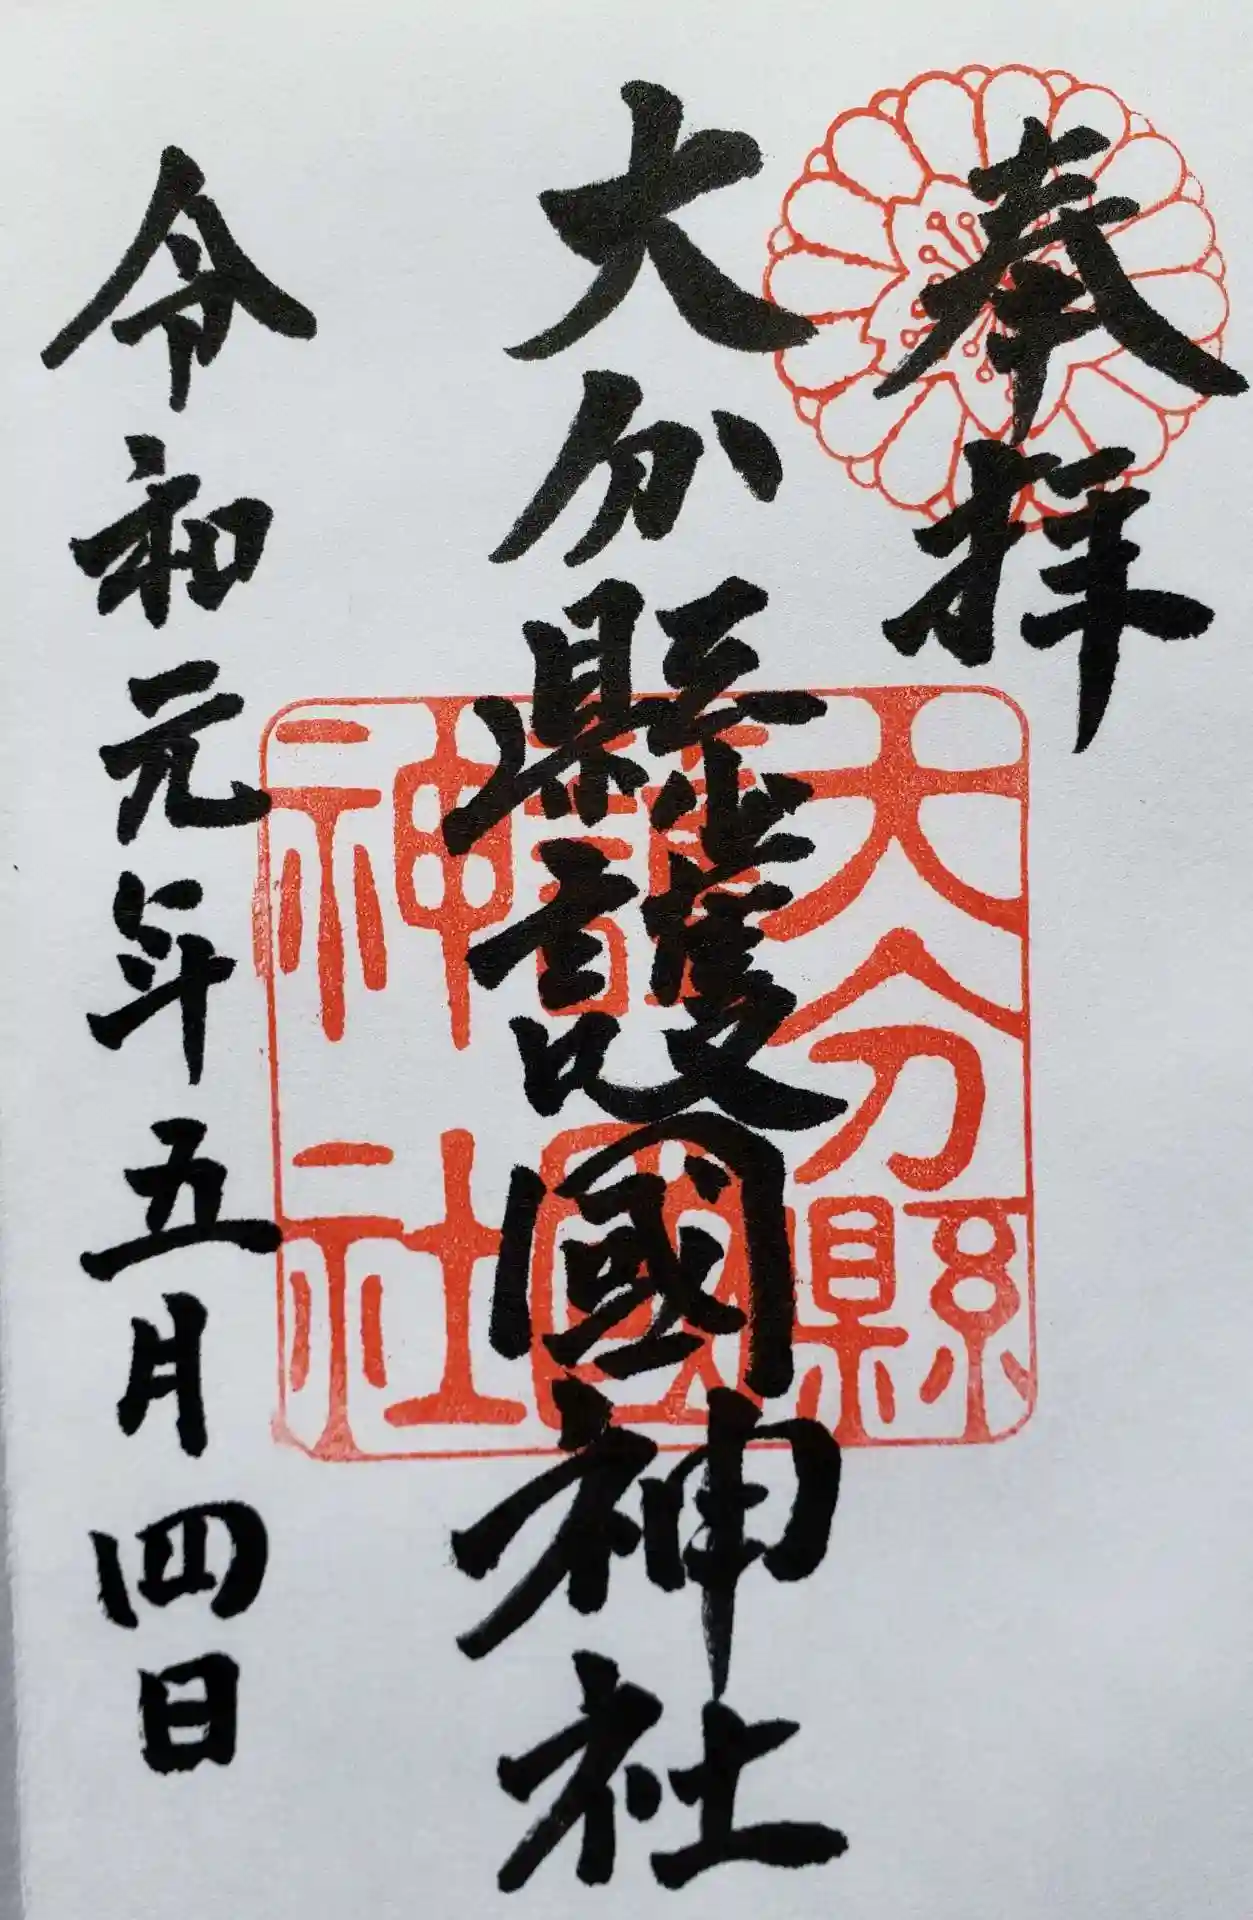 奉拝
大分縣護國神社
大分縣護國神社
令和元年五月四日